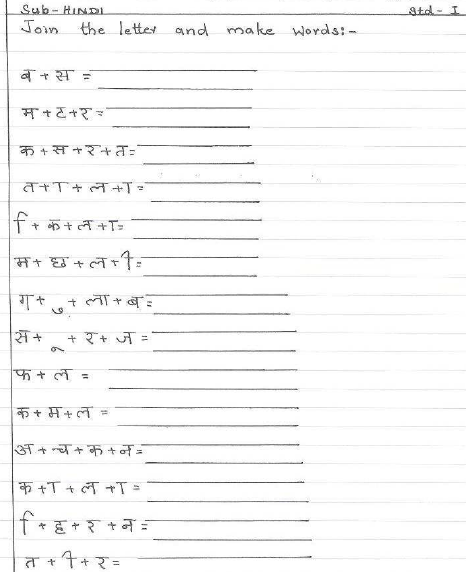 Sub-HINDI Std- I
Join the letter and make words:-
ब + स =
म + ट + र =
क + स + र + त =
त + ा + ल + ा =
ि + क + ल + ा =
म + छ + ल + ी =
ग + ु + ला + ब =
स + ू + र + ज =
फ + ल =
क + म + ल =
अ + च + क + न =
क + ा + ल + ा =
ि + ह + र + न =
त + ी + र =